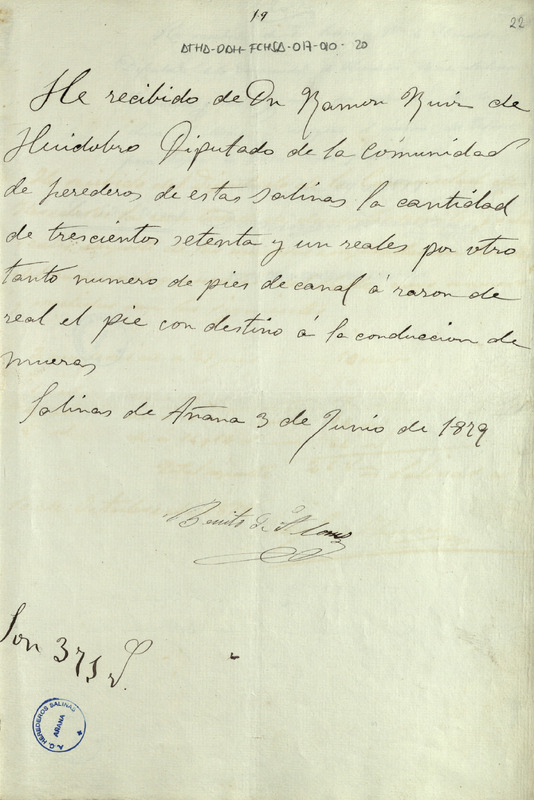 19
22
ATHA-DAH-FCHSA-017-010-20
He recibido de Dn Ramon Ruiz de
Huidobro Diputado de la Comunidad
de herederos de estas Salinas la cantidad
de trescientos setenta y un reales por otro
tanto numero de pies de canal á razon de
real el pie con destino á la conduccion de
mueras
Salinas de Añana 3 de Junio de 1879
Benito de
Son 371 r.
A.C. HEREDEROS SALINAS
AÑANA